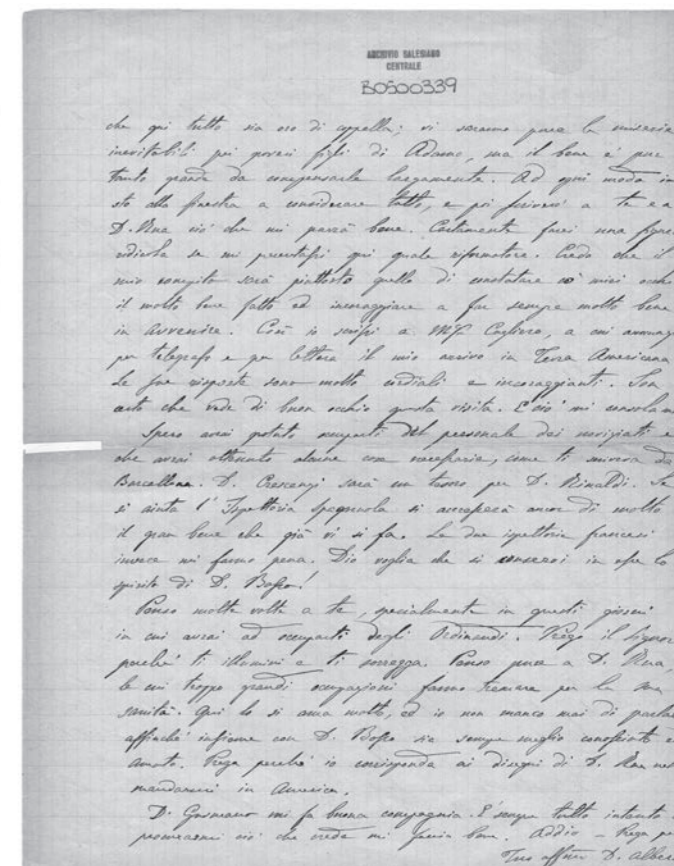 ARCHIVIO SALESIANO
CENTRALE
B0500339
che qui tutto sia oro di coppella; vi saranno pure le miserie
inevitabili pei poveri figli di Adamo, ma il bene è pur
tanto grande da compensarle largamente. Ad ogni modo io
sto alla finestra a considerare tutto, e poi scriverò a te e a
D. Rua ciò che mi parrà bene. Certamente farei una figura
ridicola se mi presentassi qui quale riformatore. Credo che il
mio compito sarà piuttosto quello di constatare co' miei occhi
il molto bene fatto ed incoraggiare a far sempre molto bene
in avvenire. Così io scrissi a Mgr Cagliero, a cui annunziai
per telegrafo e per lettera il mio arrivo in Terra Americana
Le sue risposte sono molto cordiali e incoraggianti. Son
certo che vede di buon occhio questa visita. E ciò mi consola
Spero avrai potuto occuparti del personale dei noviziati e
che avrai ottenuto alcune cose necessarie, come ti scriveva da
Barcellona. D. Crescenzi sarà un tesoro per D. Rinaldi. Se
si aiuta l'Ispettoria Spagnuola si accrescerà ancor di molto
il gran bene che già vi si fa. Le due ispettorie francesi
invece mi fanno pena. Dio voglia che si conservi in esse lo
spirito di D. Bosco!
Penso molte volte a te, specialmente in questi giorni
in cui avrai ad occuparti degli Ordinandi. Prego il Signore
perché ti illumini e ti sorregga. Penso pure a D. Rua,
le cui troppo grandi occupazioni fanno tremare per la sua
sanità. Qui lo si ama molto, ed io non manco mai di parlar
affinché insieme con D. Bosco sia sempre meglio conosciuto e
amato. Prega perché io corrisponda ai disegni di D. Rua nel
mandarmi in America.
D. Gusmano mi fa buona compagnia. È sempre tutto intento a
procurarmi ciò che crede mi faccia bene. Addio – Prega pe
Tuo affmo D. Albera